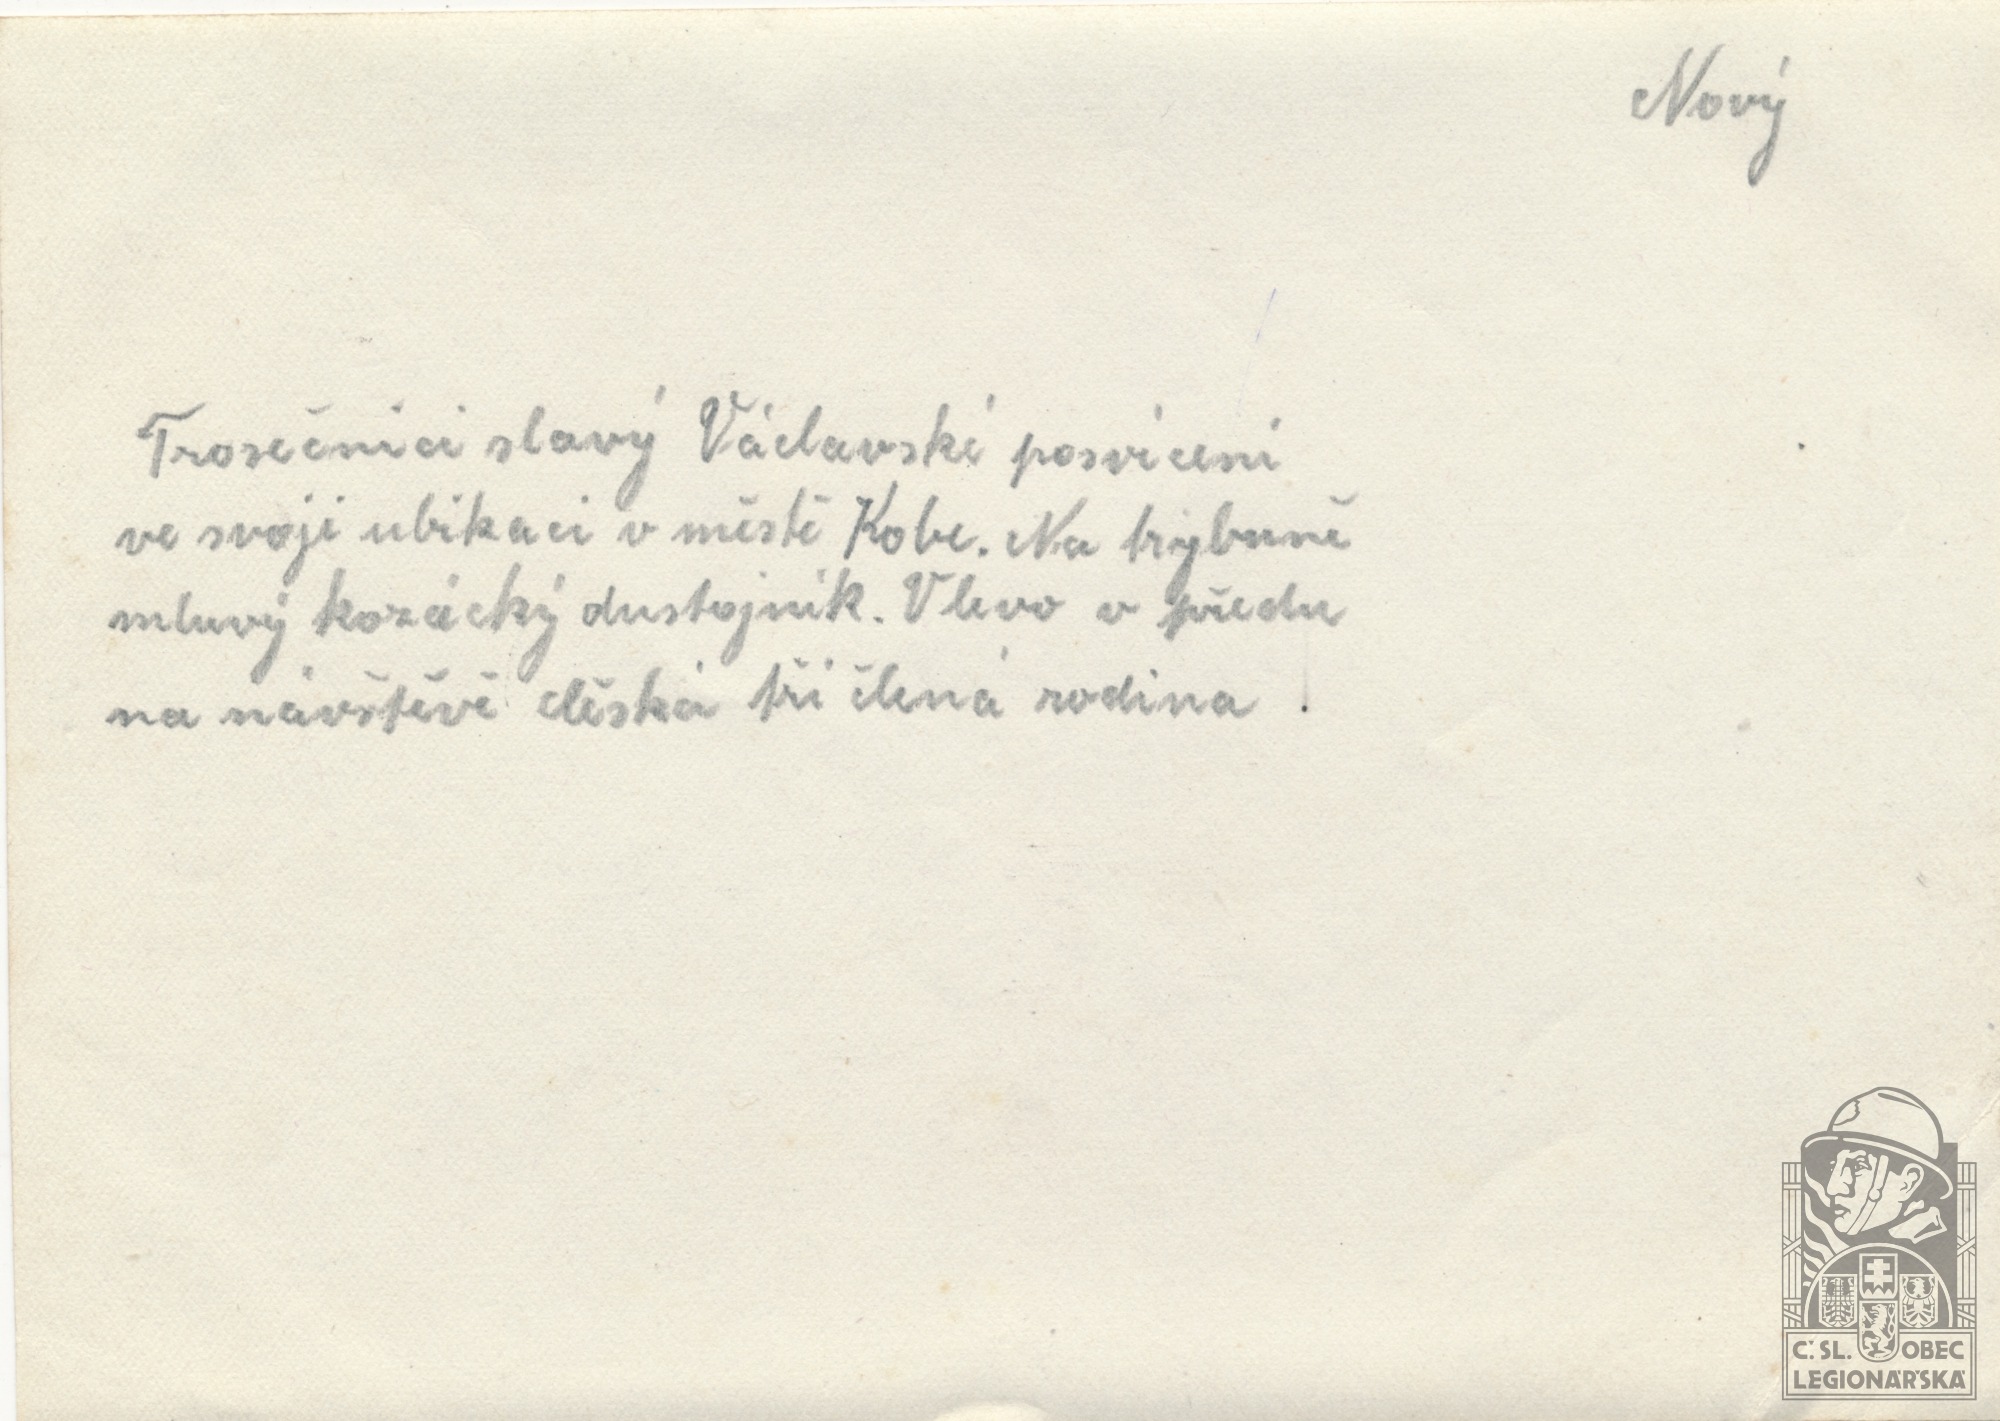 Nový
Trosečníci slavý Václavské posvícení
ve svoji ubikaci v městě Kobe. Na trybuně
mluvý kozácký dustojník. Vlevo v předu
na návštěvě člěská tří člená rodina
Č.SL. OBEC
LEGIONÁŘSKÁ